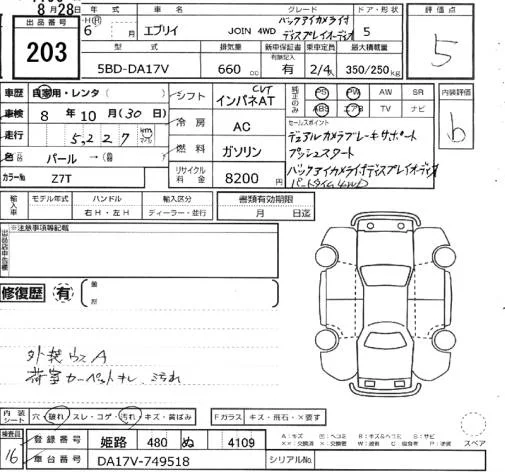 8月28日 年式 車名 グレード ドア・形状 評価点
出品番号 H R 6 月 エブリイ JOIN 4WD バックアイカメラ付 ディスプレイオーディオ 5 5
203 型式 排気量 新車保証書 乗車定員 最大積載量
5BD-DA17V 660 cc 有効記入 有 2/4人 350/250kg
車歴 自家用・レンタ ( ) シフト CVT インパネAT 純正のみ PS PW AW SR 内装評価
車検 8年10月(30日) ABS エアB TV ナビ b
走行 5,227 km マイル 冷房 AC セールスポイント
デュアルカメラブレーキサポート
色 パール→( ) 燃料 ガソリン プッシュスタート
カラーNo Z7T リサイクル料金 8200円 バックアイカメラ付ディスプレイオーディオ
パートタイム4WD
輸入車 モデル年式 ハンドル 輸入区分 書類有効期限
右H・左H ディーラー・並行 月 日迄
※注意事項等記載
修復歴 有 箇所
外装ウスA
荷室カーペットキレ、汚れ
内装シート 穴・破れ スレ・コゲ・汚れ キズ・黄ばみ Fガラス キズ・飛石・×要す
検査員 16 登録番号 姫路 480 ぬ 4109 スペア
車台番号 DA17V-749518 シリアルNo.